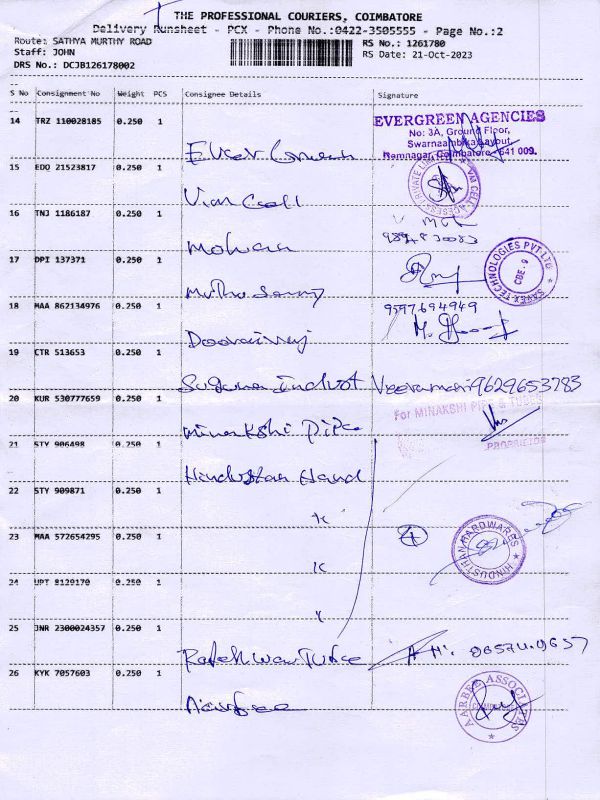 THE PROFESSIONAL COURIERS, COIMBATORE
Delivery Runsheet - PCX - Phone No.:0422-3505555 - Page No.:2
Route: SATHYA MURTHY ROAD RS No.: 1261780
Staff: JOHN RS Date: 21-Oct-2023
DRS No.: DCJB126178002
S No Consignment No Weight PCS Consignee Details Signature
14 TRZ 110028185 0.250 1
EVERGREEN AGENCIES
No: 3A, Ground Floor,
Swarnaambika Layout,
Ramnagar, Coimbatore - 641 009.
15 EDO 21523817 0.250 1
16 TNJ 1186187 0.250 1
Mohan
17 DPI 137371 0.250 1
SAVEX TECHNOLOGIES PVT LTD
CBE - 9
Muthu Samy
18 MAA 862134976 0.250 1
9597694949
Dooraisraj
19 CTR 513653 0.250 1
Suguna Indust Veeramani 9629653783
20 KUR 530777659 0.250 1
For MINAKSHI PIPE & TUBES
PROPRIETOR
Minakshi Pipe
21 STY 906498 0.250 1
Hindustan Hand
22 STY 909871 0.250 1
23 MAA 572654295 0.250 1
4
HINDUSTHAN HARDWARES
24 UPT 8129170 0.250 1
25 JNR 2300024357 0.250 1
26 KYK 7057603 0.250 1
AARBEE ASSOCIATES